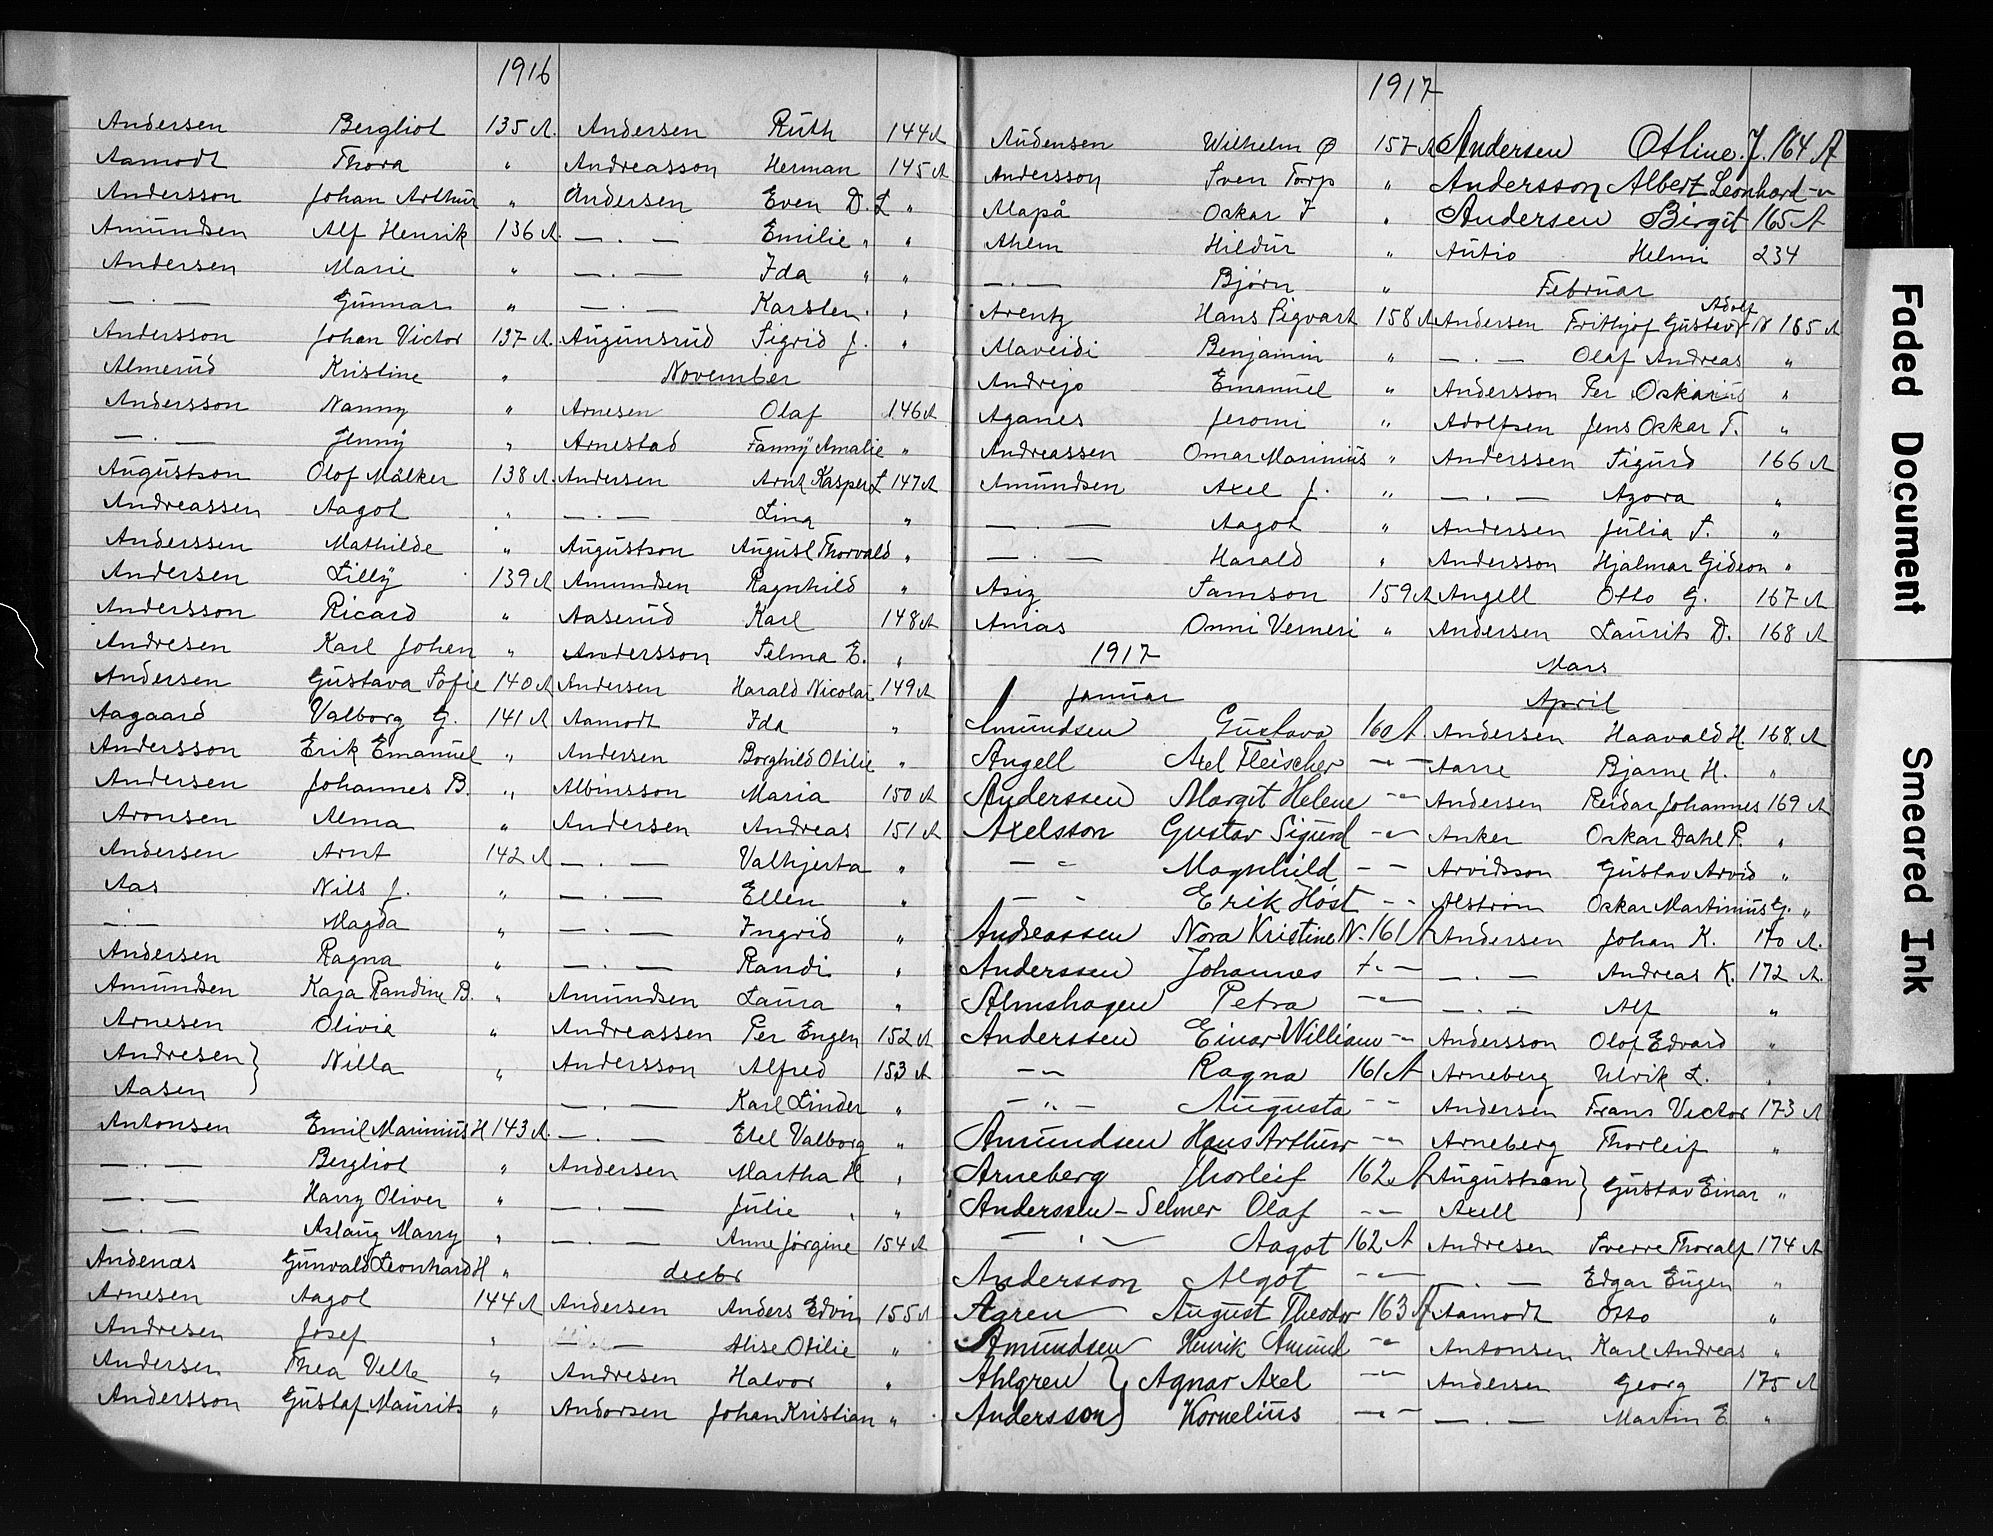 1916
Andersen Bergliot 135 A.
Aamodt Thora "
Andersson Johan Arthur "
Amundsen Alf Henrik 136 A.
Andersen Marie "
— . — Gunnar "
Andersson Johan Victor 137 A.
Almerud Kristine "
Andersson Nanny "
— . — Jenny "
Augustson Olof Mälker 138 A.
Andreassen Aagot "
Anderssen Mathilde "
Andersen Lilly 139 A
Andersson Ricard "
Andresen Karl Johan "
Andersen Gustava Sofie 140 A
Aagaard Valborg G. 141 A
Andersson Erik Emanuel "
Andersen Johannes B. "
Aronsen Alma "
Andersen Arnt 142 A
Aas Nils J. "
— . — Magda "
Andersen Ragna "
Amundsen Kaja Randine B. "
Arnesen Olivie "
Andresen } Nilla "
Aasen }
Antonsen Emil Marinius H 143 A.
— . — Bergliot "
— . — Harry Oliver "
— . — Aslaug Marry "
Andenæs Gunvald Leonhard H "
Arnesen Aagot 144 A
Andresen Josef "
Andersen Thea Velle "
Andersson Gustaf Maurits "
Andersen Ruth 144 A
Andreasson Herman 145 A
Andersen Even D. L "
— . — Emilie " "
— . — Ida " "
— . — Karsten . "
Augunsrud Sigrid J. "
November
Arnesen Olaf 146 A
Arnestad Fanny Amalie "
Andersen Arnt Kasper L 147 A
— . — Lina "
Augustson August Thorvald "
Amundsen Ragnhild "
Aaserud Karl 148 A
Andersson Selma E. "
Andersen Harald Nicolai 149 A
Aamodt Ida "
Andersen Borghild Otilie "
Albinsson Maria 150 A
Andersen Andreas 151 A
— . — Valhjerta "
— . — Ellen "
— . — Ingrid "
— . — Randi "
Amundsen Laura "
Andreassen Per Engen 152 A
Andersson Alfred 153 A
— . — Karl Linder "
— . — Etel Valborg "
Andersen Martha H "
— . — Julie "
— . — Anne Jørgine 154 A
decbr
Andersen Anders Edvin 155 A
— . — Alise Otilie "
Andresen Halvor "
Andersen Johan Kristian "
1917
Audensen Wilhelm Ø 157 A
Andersson Sven Torp "
Alapå Oskar J "
Ahlm Hildur "
— . — Bjørn "
Arentz Hans Sigvart 158 A
Alaveidi Benjamin "
Andrejo Emanuel "
Aganes Jeromi "
Andreassen Omar Marinius "
Amundsen Axel J. "
— . — Aagot "
— . — Harald "
Asig Samson 159 A
Anias Onni Verneri "
1917
Januar
Amundsen Gustava 160 A
Angell Axel Fleischer — " —
Anderssen Margit Helene — " —
Axelsson Gustav Sigurd — " —
— " — Magnhild — —
— " — Erik Høst — —
Andreassen Nora Kristine N. 161 A
Anderssen Johannes — " —
Almshagen Petra — " —
Anderssen Einar William — " —
— " — Ragna 161 A
— " — Augusta — —
Amundsen Hans Arthur — " —
Arneberg Thorleif 162 A
Anderssen - Selmer Olaf — " —
— " — Aagot 162 A
Andersson Algot — " —
Ågren August Theodor 163 A
Amundsen Henrik Amund — " —
Ahlgren } Agnar Axel — " —
Andersson } Kornelius — " —
Andersen Otline J. 164 A
Andersson Albert Leonhard — " —
Andersen Birgit 165 A
Autio Helmi 234
Februar
Adolf
Andersen Frithjof Gustav N 165 A
— . — Olaf Andreas "
Andersson Per Oskarius "
Adolfsen Jens Oskar T. "
Anderssen Sigurd 166 A
— . — Agora "
Andersen Julia S. "
Andersson Hjalmar Gideon "
Angell Otto G. 167 A
Andersen Laurits D. 168 A
Mars
April
Andersen Haavald H 168 A
Aarre Bjarne H. "
Andersen Reidar Johannes 169 A
Anker Oskar Dahl P. "
Arvidsson Gustav Arvid "
Alstrøm Oskar Martinius G. "
Andersen Johan K. 170 A.
— . — Andreas K. 172 A.
— . — Alf "
Andersson Olof Edvard "
Arneberg Ulrik L. "
Andersen Frans Victor 173 A
Arneberg Thorleif "
Augustson } Gustav Einar "
Axell }
Andresen Sverre Thoralf 174 A
— . — Edgar Eugen "
Aamodt Otto "
Antonsen Karl Andreas "
Andersen Georg 175 A
— . — Martin E. "
Faded Document
Smeared Ink